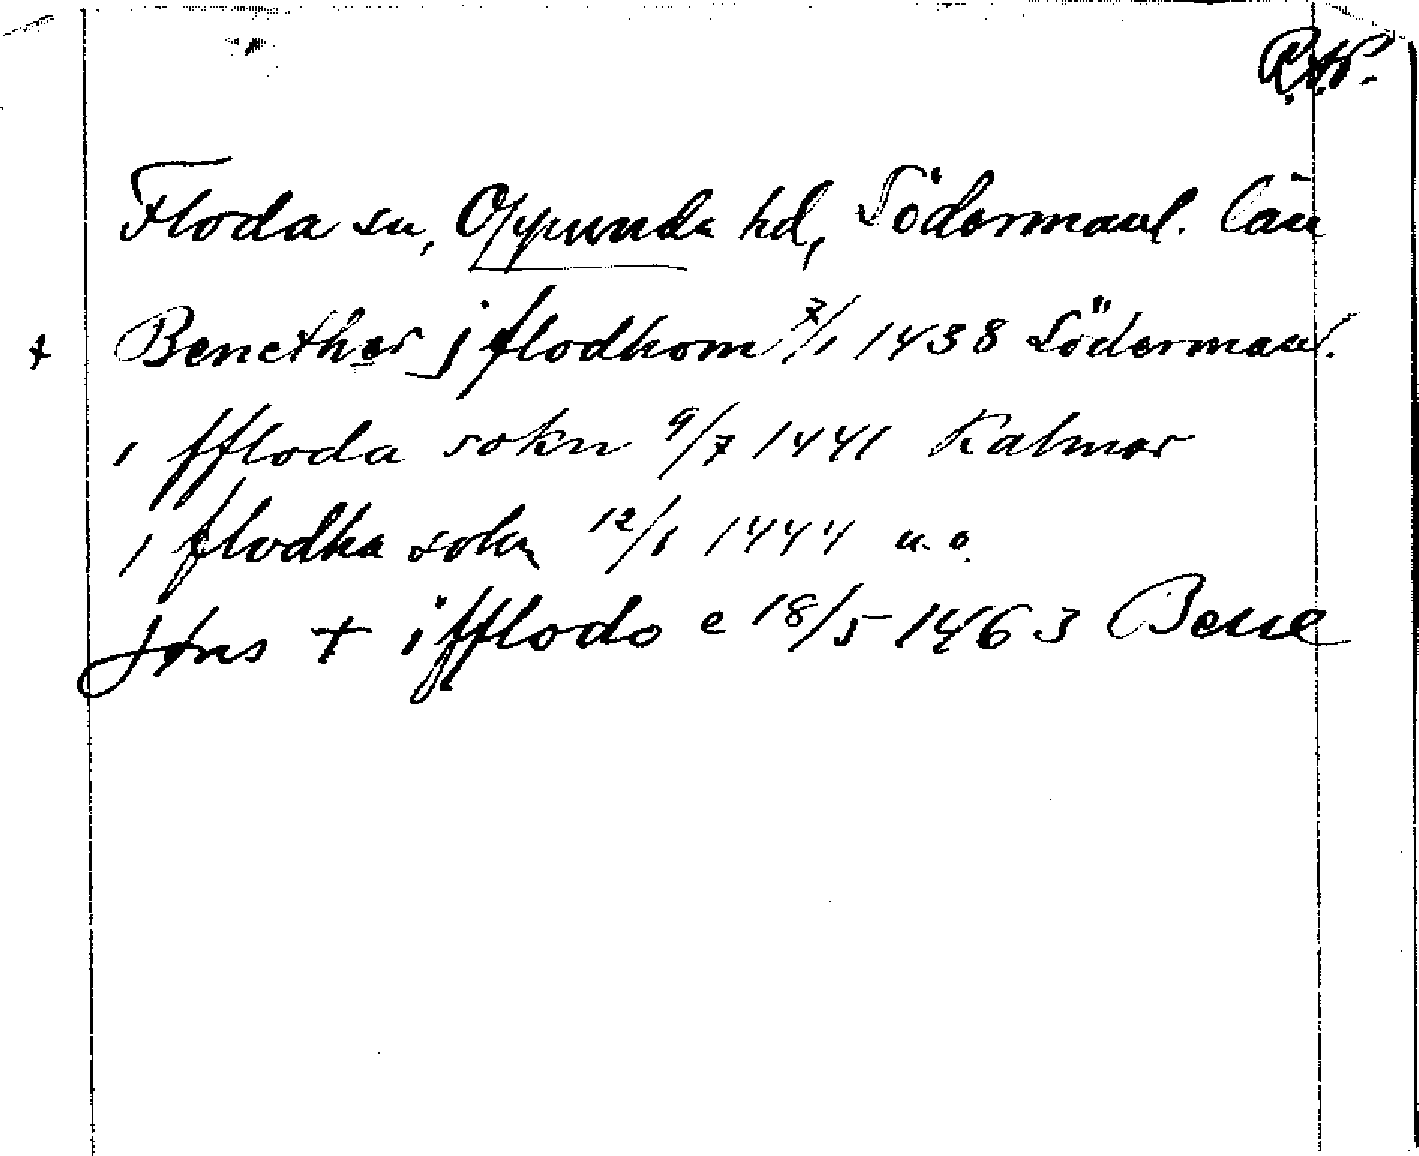 R.A.P.
Floda sn, Oppunda hd, Södermanl. län
+ Benether j flodhom 7/1 1438 Södermanl.
i ffloda sokn 9/7 1441 Kalmar
i flodha sokn 12/1 1444 u. o.
Jöns + i fflodo e 18/5 1463 Bene